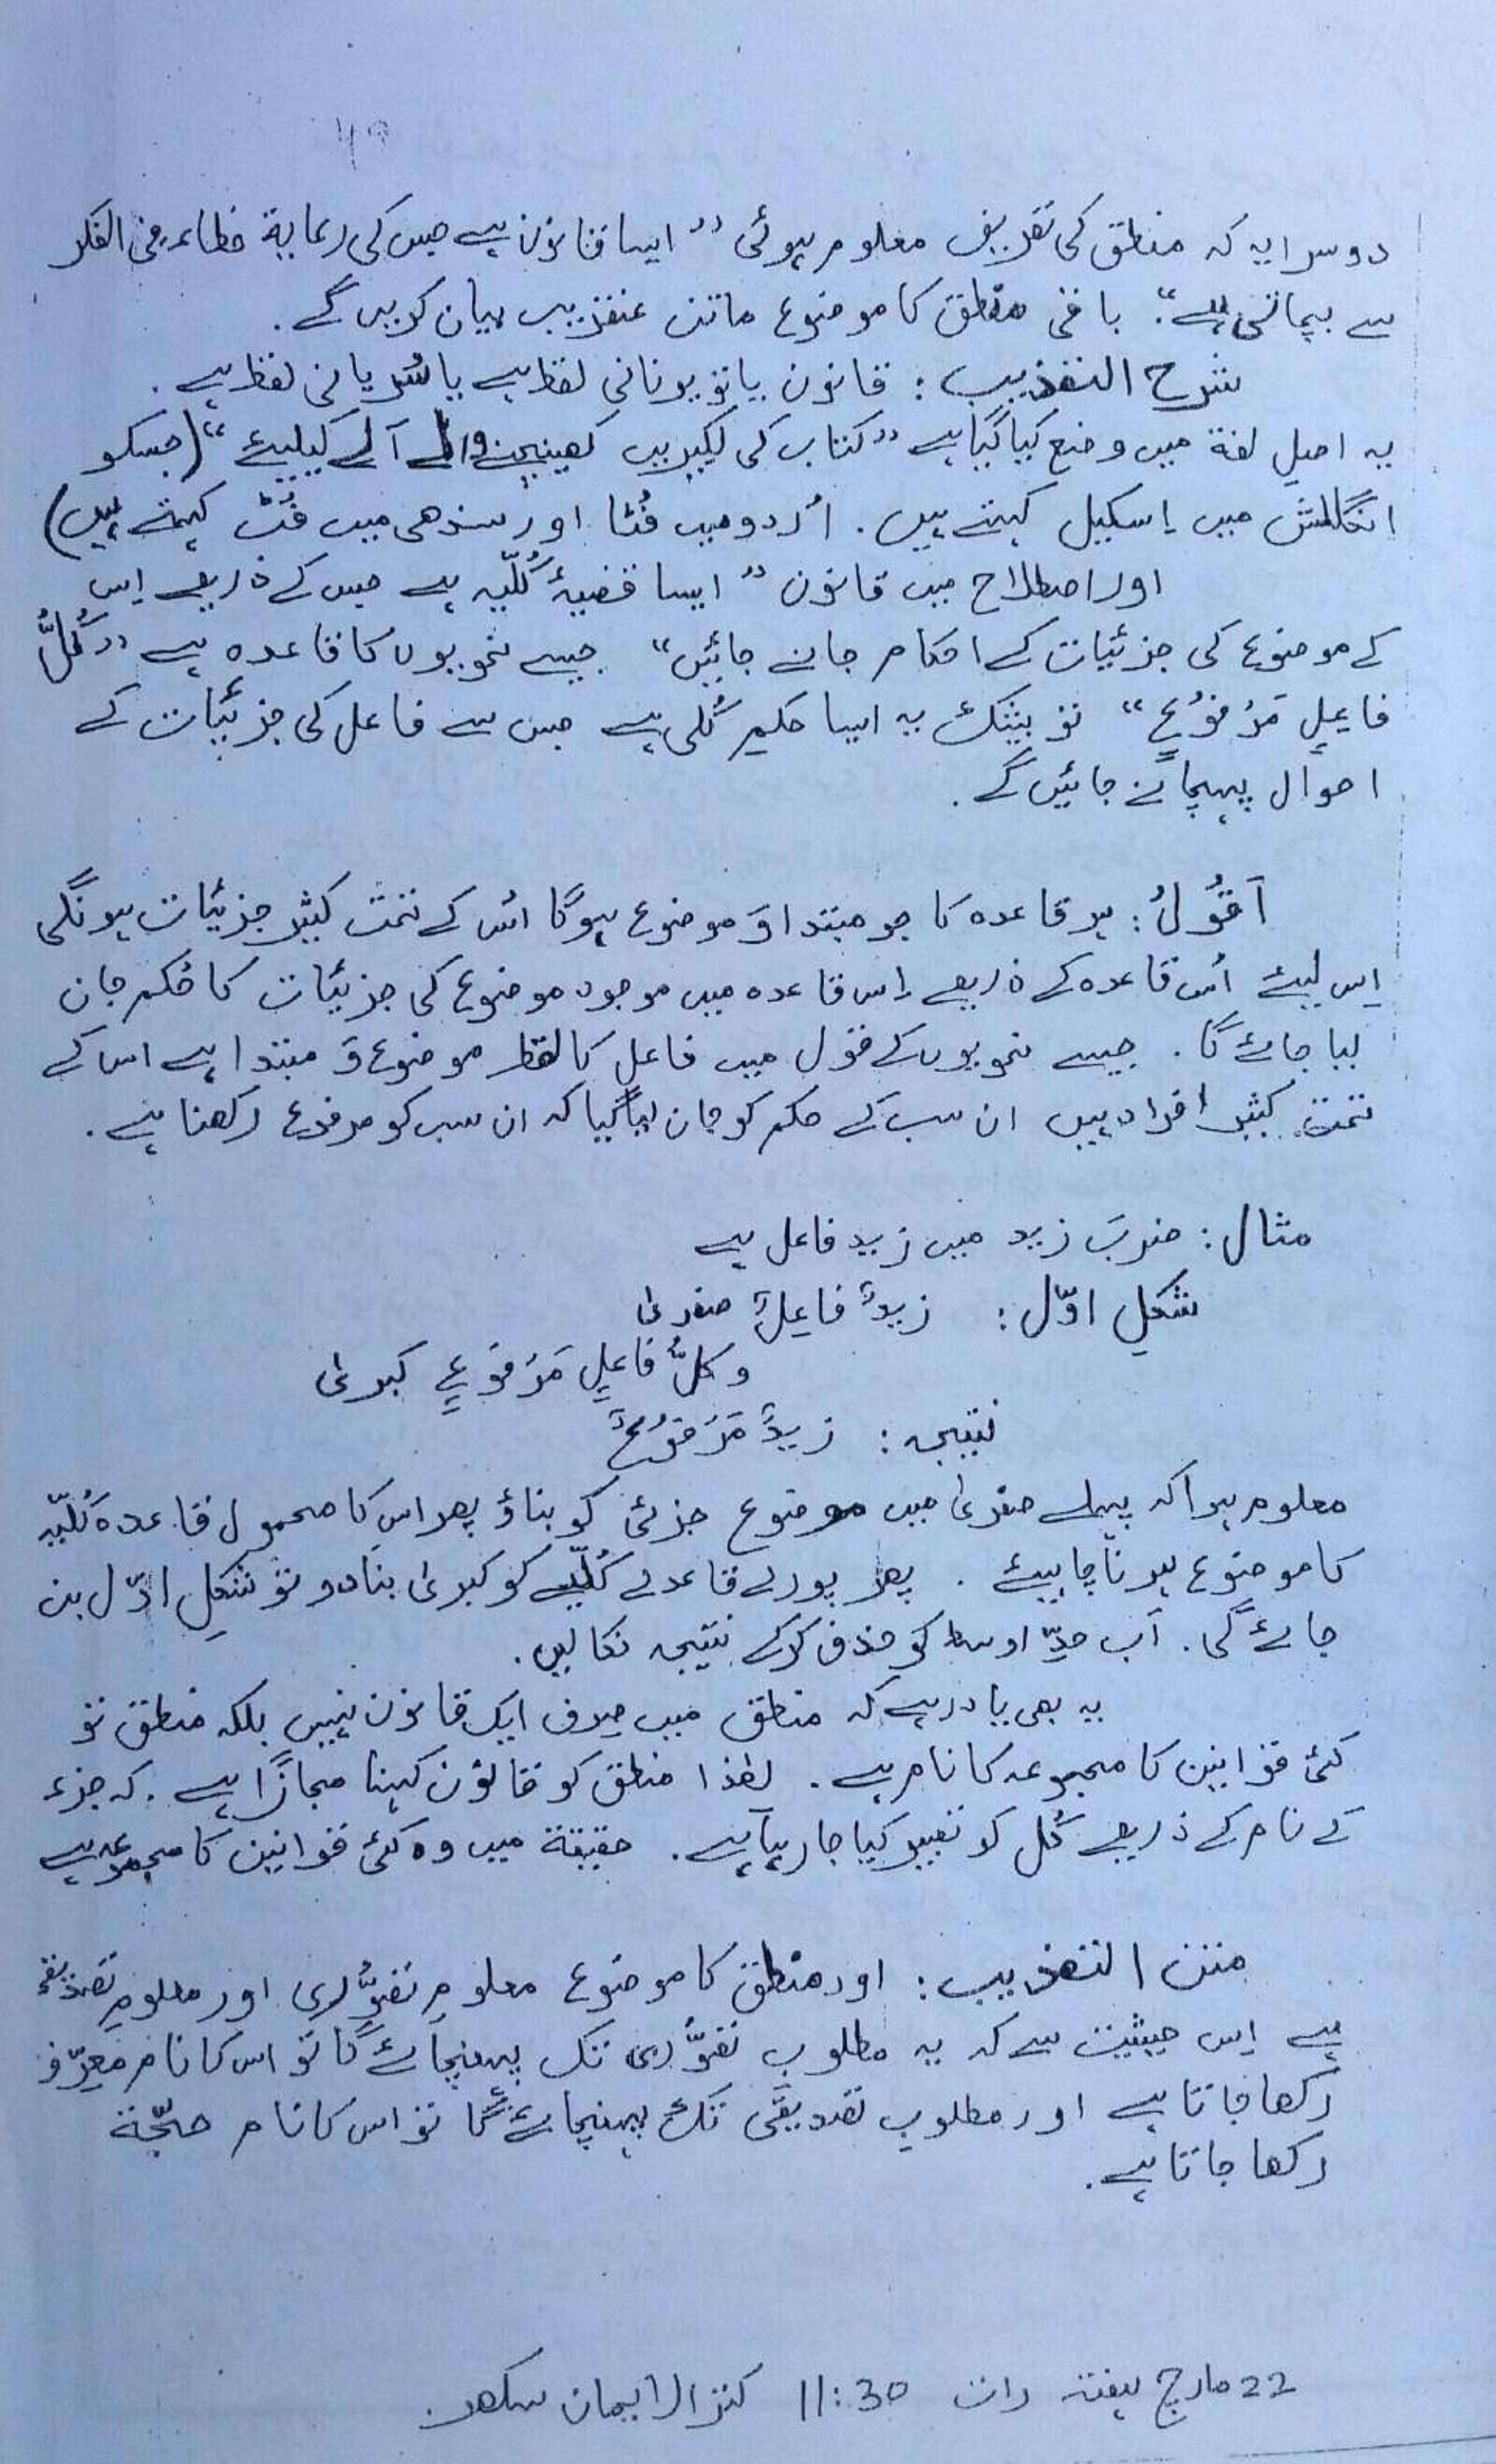 49
دوسرا یہ کہ منطق کی تعریف معلوم ہوئی ” ایسا قانون ہے جس کی رعایۃ خطاء فی الفکر
سے بچاتی ہے“. باقی منطق کا موضوع ماتن عنقریب بیان کریں گے.
شرح التھذیب : قانون یا تو یونانی لفظ ہے یا سُریانی لفظ ہے.
یہ اصلِ لغۃ میں وضع کیا گیا ہے ” کتاب کی لکیریں کھینچنے والے آلے کیلیئے “ (جسکو
انگلش میں اِسکیل کہتے ہیں. اُردو میں فُٹا اور سندھی میں فُٹ کہتے ہیں)
اور اصطلاح میں قانون ” ایسا قضیۂ کُلّیہ ہے جس کے ذریعے اِس
کے موضوع کی جزئیات کے احکام جانے جائیں “ جیسے نحویوں کا قاعدہ ہے ” کُلُّ
فاعِلٍ مَرْفُوْعٌ “ تو بیشک یہ ایسا حکمِ کُلی ہے جس سے فاعل کی جزئیات کے
احوال پہچانے جائیں گے.
اَقُوْلُ : ہر قاعدہ کا جو مبتدا وَ موضوع ہوگا اُس کے تحت کثیر جزئیات ہونگی
اِس لیئے اُس قاعدہ کے ذریعے اِس قاعدہ میں موجود موضوع کی جزئیات کا حُکم جان
لیا جائے گا. جیسے نحویوں کے قول میں فاعل کا لفظ موضوع وَ مبتدا ہے اس کے
تحت کثیر افراد ہیں ان سب کے حکم کو جان لیا گیا کہ ان سب کو مرفوع رکھنا ہے.
مثال : ضربَ زید میں زید فاعل ہے
شکلِ اوّل : زیدٌ فاعِلٌ صغریٰ
و کلُّ فاعلٍ مَرْفوعٌ کبریٰ
نتیجہ : زیدٌ مَرْفُوْعٌ
معلوم ہوا کہ پہلے صغریٰ میں موضوع جزئی کو بناؤ پھر اس کا محمول قاعدہ کُلّیّہ
کا موضوع ہونا چاہیئے. پھر پورے قاعدے کُلّیے کو کبریٰ بنا دو تو شکلِ اوّل بن
جائے گی. اَب حدِّ اوسط کو حذف کرکے نتیجہ نکالیں.
یہ بھی یاد رہے کہ منطق میں صِرف ایک قانون نہیں بلکہ منطق تو
کئی قوانین کا مجموعہ کا نام ہے. لھٰذا منطق کو قانون کہنا مجازًا ہے. کہ جزء
کے نام کے ذریعے کُل کو تعبیر کیا جا رہا ہے. حقیقۃ میں وہ کئی قوانین کا مجموعہ ہے
متن التھذیب : اور منطق کا موضوع معلومِ تصوُّری اور معلومِ تصدیقی
ہے اِس حیثیت سے کہ یہ مطلوبِ تصوُّری تک پہنچائے گا تو اس کا نام مُعرِّف
رکھا جاتا ہے اور مطلوبِ تصدیقی تک پہنچائے گا تو اس کا نام حُجّۃ
رکھا جاتا ہے.
22 مارچ ہفتہ رات 11:30 کنز الایمان سکھر.